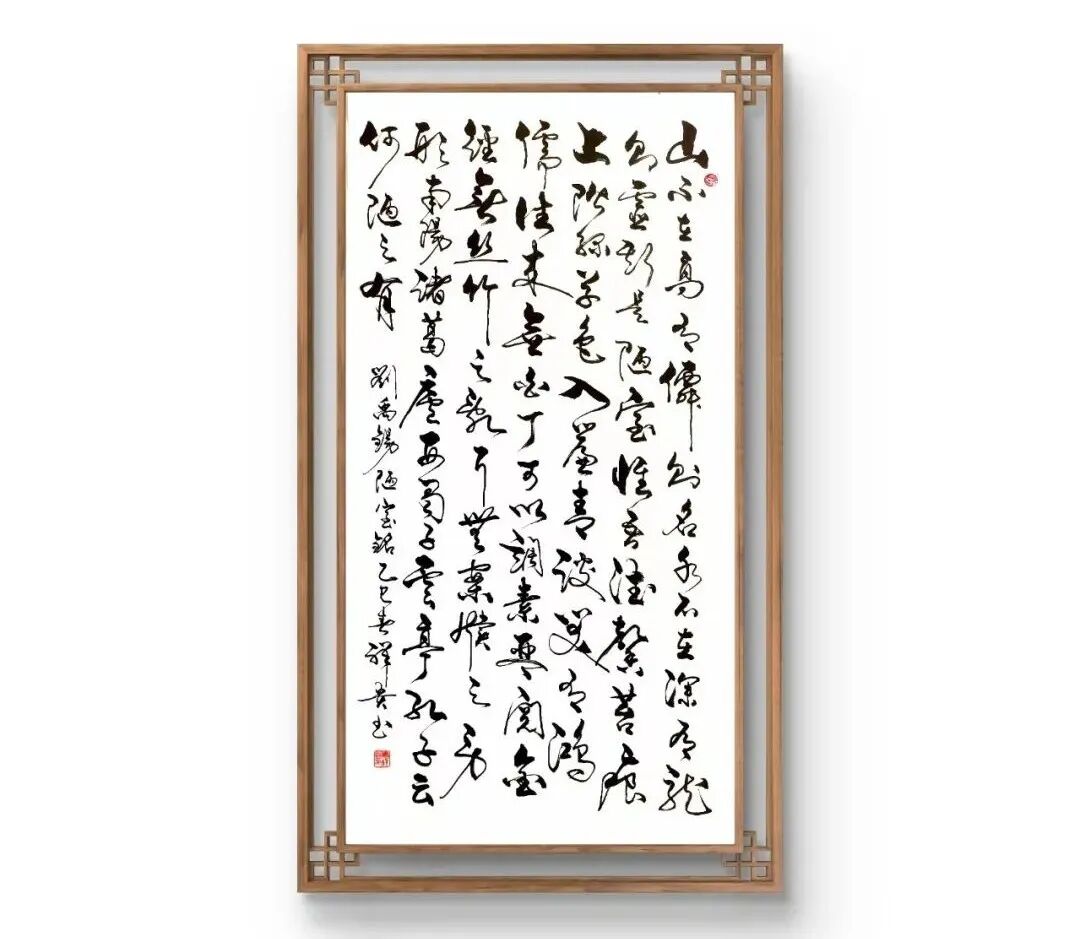 山不在高有僊则名水不在深有龍
则靈斯是陋室惟吾德馨苔痕
上階緑草色入簾青談笑有鴻
儒往来無白丁可以調素琴閲金
經無丝竹之亂耳無案牘之勞
形南陽諸葛廬西蜀子雲亭孔子云
何陋之有 劉禹錫陋室銘乙巳春祥书